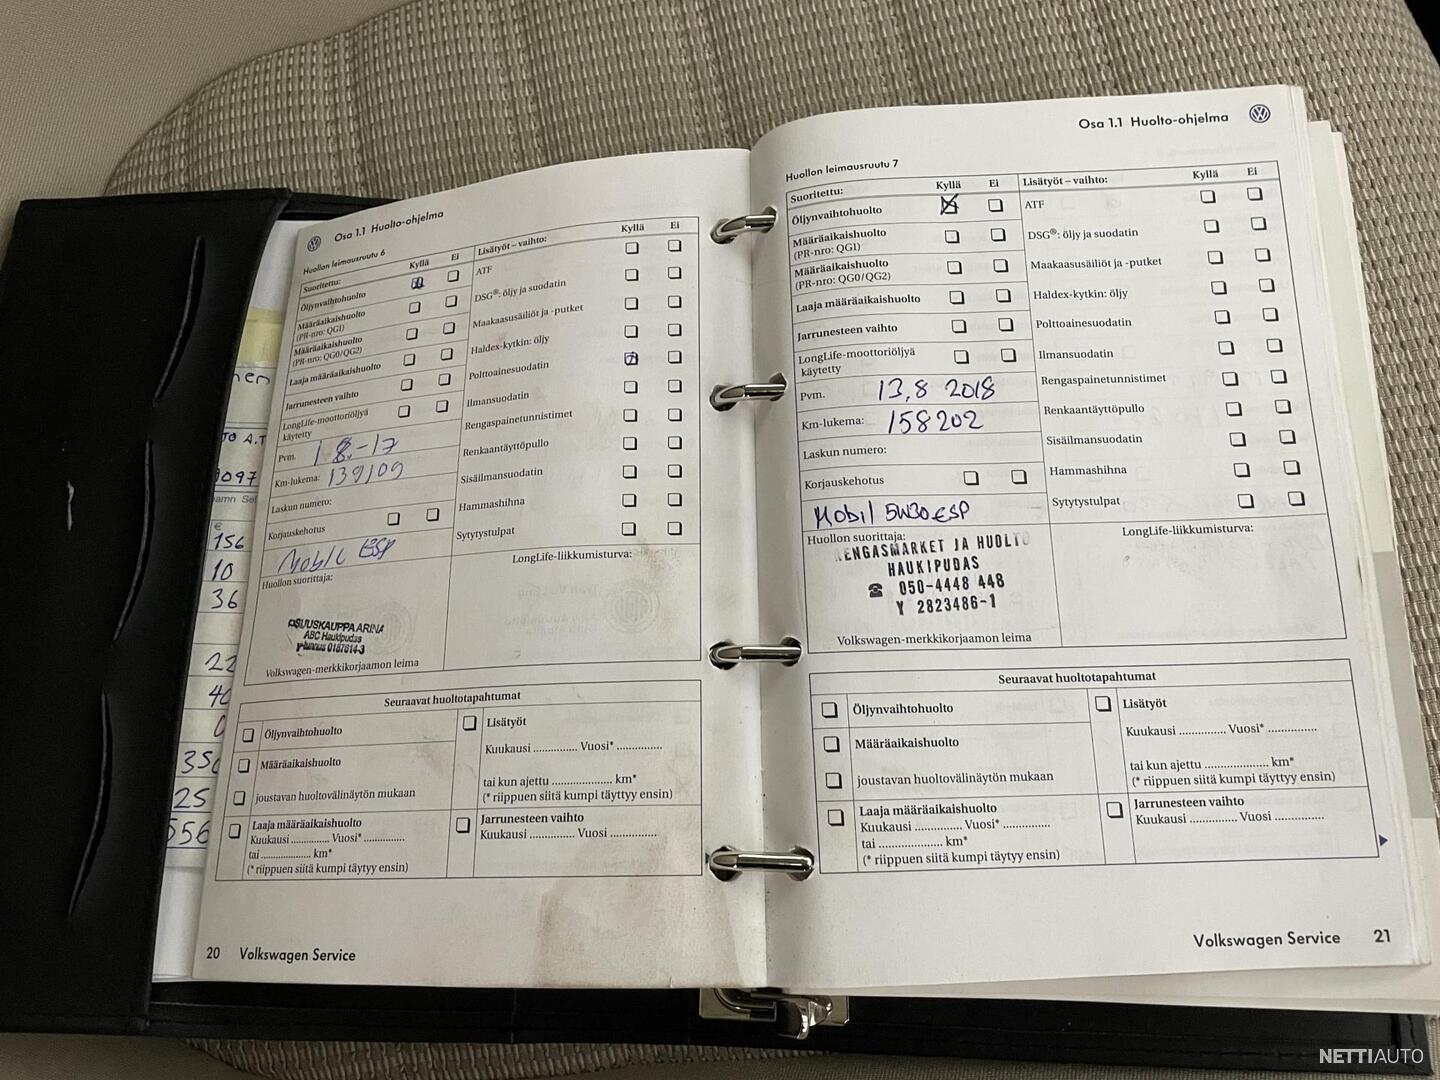 Osa 1.1 Huolto-ohjelma
Huollon leimausruutu 6
Suoritettu:
Kyllä
Ei
Öljynvaihtohuolto
Määräaikaishuolto
(PR-nro: QG1)
Määräaikaishuolto
(PR-nro: QG0/QG2)
Laaja määräaikaishuolto
Jarrunesteen vaihto
LongLife-moottoriöljyä
käytetty
Pvm. 1 8.-17
Km-lukema: 139109
Laskun numero:
Korjauskehotus
Mobil ESP
Huollon suorittaja:
OSUUSKAUPPA ARINA
ABC Haukipudas
y-tunnus 0187614-3
Volkswagen-merkkikorjaamon leima
Lisätyöt – vaihto:
Kyllä
Ei
ATF
DSG®: öljy ja suodatin
Maakaasusäiliöt ja -putket
Haldex-kytkin: öljy
Polttoainesuodatin
Ilmansuodatin
Rengaspainetunnistimet
Renkaantäyttöpullo
Sisäilmansuodatin
Hammashihna
Sytytystulpat
LongLife-liikkumisturva:
Seuraavat huoltotapahtumat
Öljynvaihtohuolto
Määräaikaishuolto
joustavan huoltovälinäytön mukaan
Laaja määräaikaishuolto
Kuukausi .............. Vuosi* ...............
tai .................... km*
(* riippuen siitä kumpi täytyy ensin)
Lisätyöt
Kuukausi ............... Vuosi* ...............
tai kun ajettu .................... km*
(* riippuen siitä kumpi täyttyy ensin)
Jarrunesteen vaihto
Kuukausi ............... Vuosi ...............
20 Volkswagen Service
Osa 1.1 Huolto-ohjelma
Huollon leimausruutu 7
Suoritettu:
Kyllä
Ei
Öljynvaihtohuolto
Määräaikaishuolto
(PR-nro: QG1)
Määräaikaishuolto
(PR-nro: QG0/QG2)
Laaja määräaikaishuolto
Jarrunesteen vaihto
LongLife-moottoriöljyä
käytetty
Pvm. 13,8 2018
Km-lukema: 158202
Laskun numero:
Korjauskehotus
Mobil 5W30 ESP
Huollon suorittaja:
RENGASMARKET JA HUOLTO
HAUKIPUDAS
☎ 050-4448 448
Y 2823486-1
Volkswagen-merkkikorjaamon leima
Lisätyöt – vaihto:
Kyllä
Ei
ATF
DSG®: öljy ja suodatin
Maakaasusäiliöt ja -putket
Haldex-kytkin: öljy
Polttoainesuodatin
Ilmansuodatin
Rengaspainetunnistimet
Renkaantäyttöpullo
Sisäilmansuodatin
Hammashihna
Sytytystulpat
LongLife-liikkumisturva:
Seuraavat huoltotapahtumat
Öljynvaihtohuolto
Määräaikaishuolto
joustavan huoltovälinäytön mukaan
Laaja määräaikaishuolto
Kuukausi .............. Vuosi* ...............
tai .................... km*
(* riippuen siitä kumpi täytyy ensin)
Lisätyöt
Kuukausi ............... Vuosi* ...............
tai kun ajettu .................... km*
(* riippuen siitä kumpi täyttyy ensin)
Jarrunesteen vaihto
Kuukausi ............... Vuosi ...............
Volkswagen Service 21
156
10
36
22
25
556
NETTIAUTO